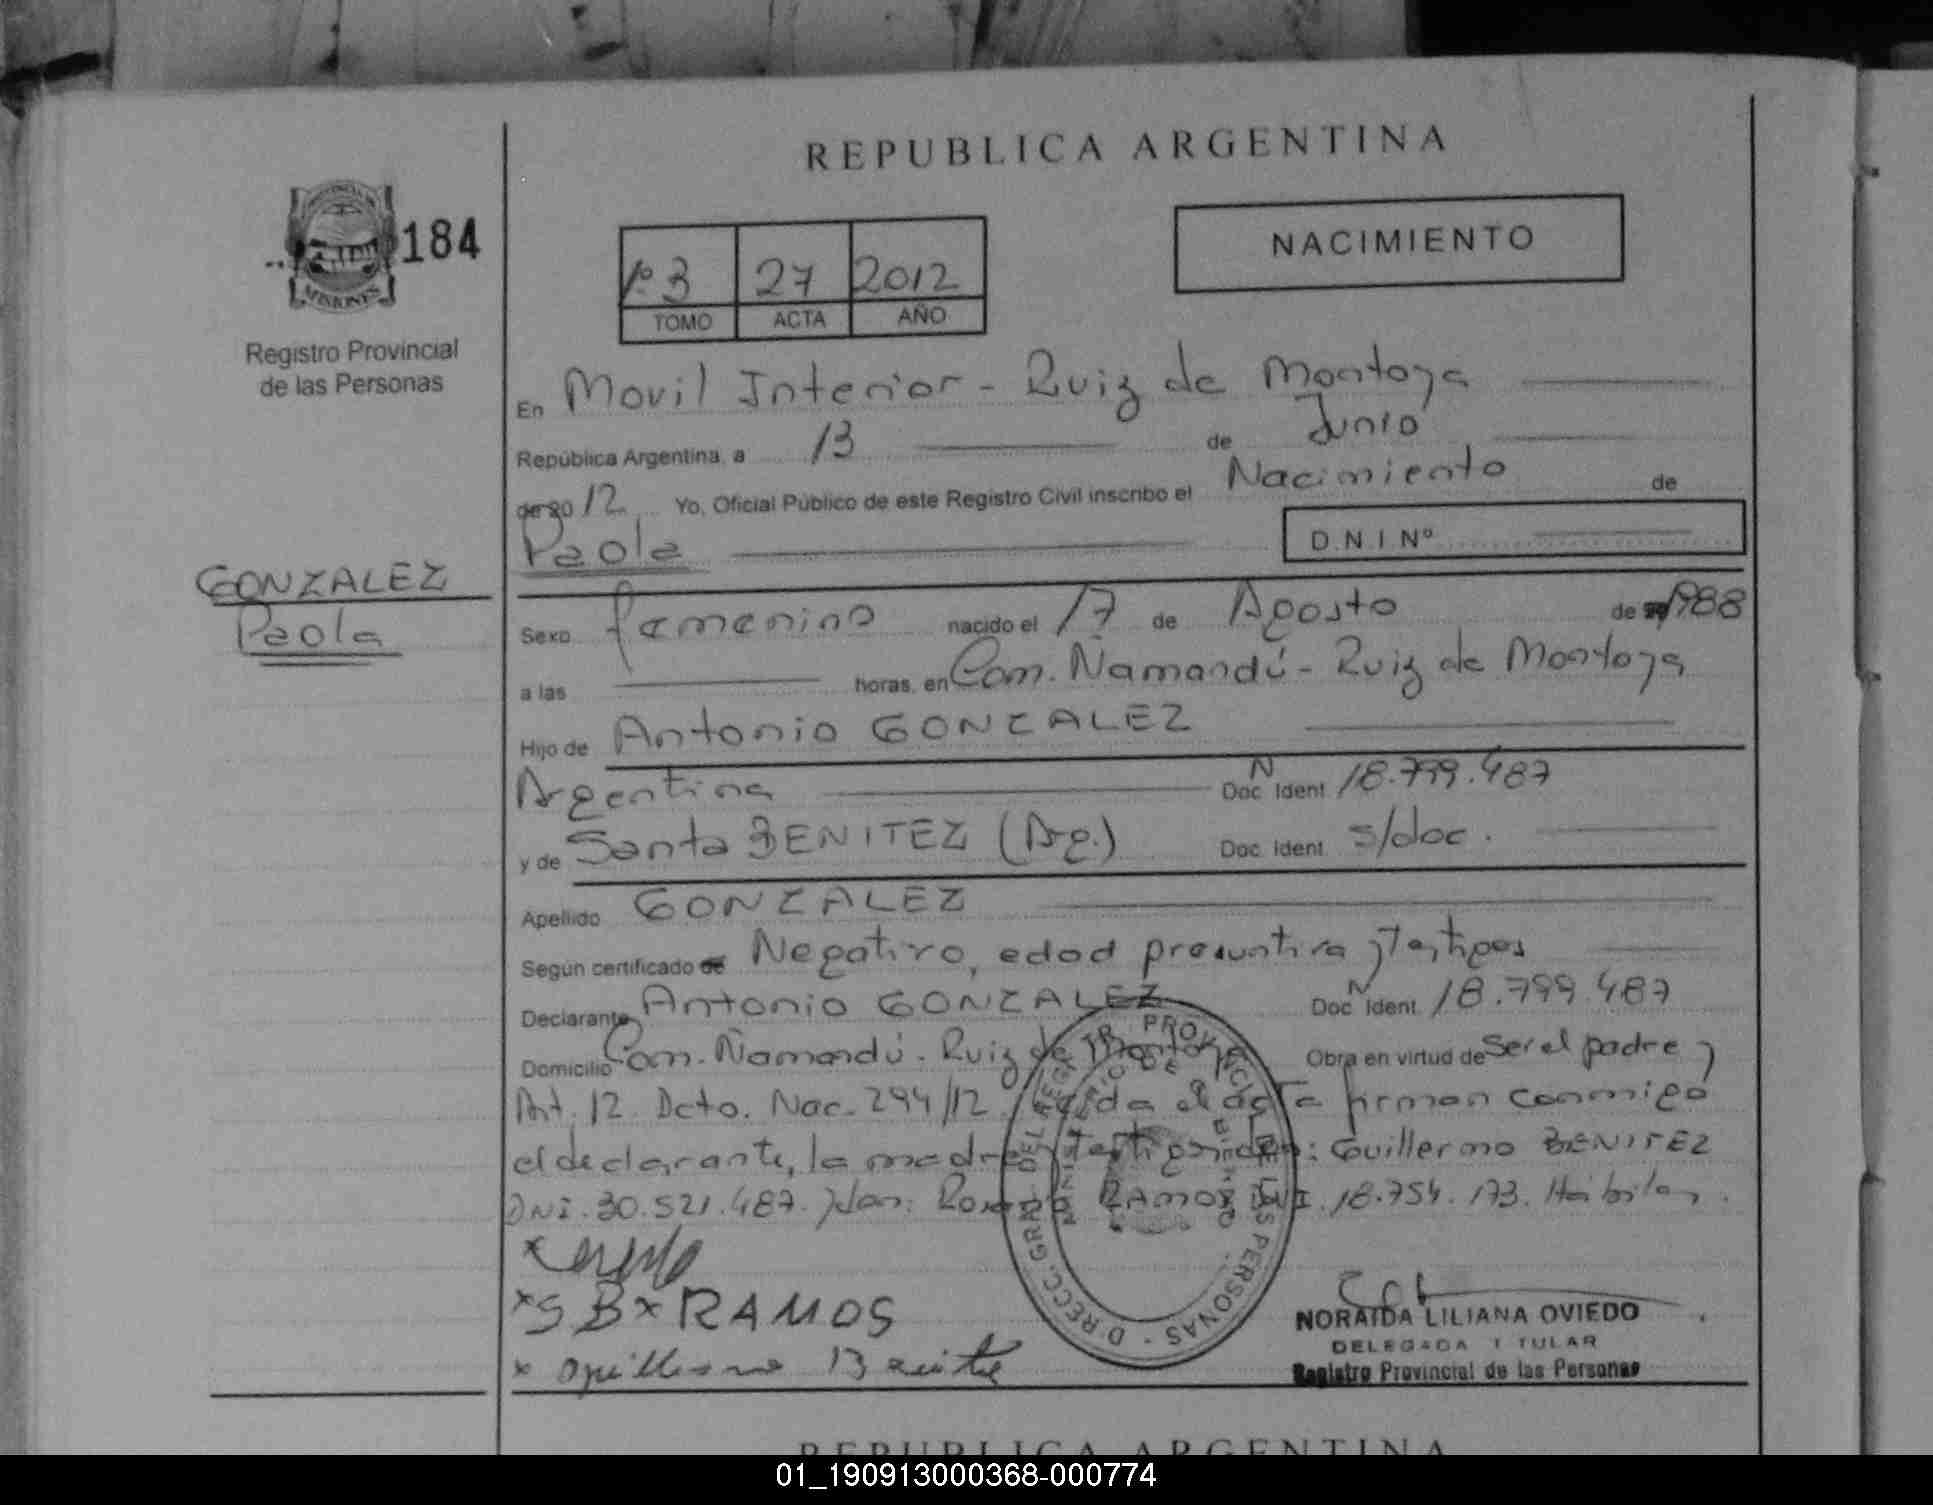 REPUBLICA ARGENTINA
PROVINCIA DE
MISIONES
184
Registro Provincial
de las Personas
1º 3 27 2012
TOMO ACTA AÑO
NACIMIENTO
En Movil Interior - Ruiz de Montoya
República Argentina, a 13 de Junio
de 20 12 Yo, Oficial Público de este Registro Civil inscribo el Nacimiento de
Paola
D.N.I. Nº
GONZALEZ
Paola
Sexo femenino nacido el 17 de Agosto de 1988
a las horas, en Com. Ñamandú - Ruiz de Montoya
Hijo de Antonio GONZALEZ
Argentina Doc. N Ident. 18.799.487
y de Santa BENITEZ (Arg.) Doc. Ident. s/doc.
Apellido GONZALEZ
Según certificado de Negativo, edad presuntiva y testigos
Declarante Antonio GONZALEZ Doc. N Ident. 18.799.487
Domicilio Com. Ñamandú. Ruiz de Montoya Obra en virtud de Ser el padre y
Art. 12 Dcto. Nac. 294/12. Leída el acta firman conmigo
el declarante, la madre y testigos : Guillermo BENITEZ
DNI. 30.521.487. RAMOS DNI. 18.754.173. Hábiles.
x
x S B x RAMOS
x Guillermo Benitez
DIRECC. GRAL. DEL REGISTR. PROVINCIAL DE LAS PERSONAS
MINISTERIO DE GOBIERNO
NORAIDA LILIANA OVIEDO
DELEGADA TITULAR
Registro Provincial de las Personas
REPUBLICA ARGENTINA
01_190913000368-000774